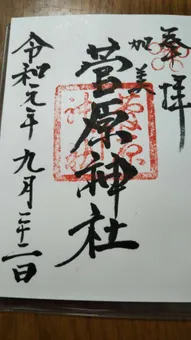 奉拝
加美
菅原神社
令和元年九月二十二日